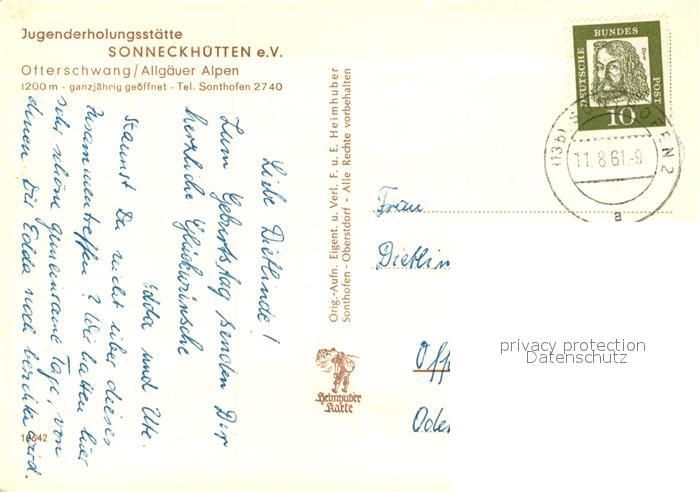 Jugenderholungsstätte
SONNECKHÜTTEN e.V.
Ofterschwang/Allgäuer Alpen
1200 m - ganzjährig geöffnet - Tel. Sonthofen 2740
Liebe Dietlinde!
Zum Geburtstag senden Dir
herzliche Glückwünsche
Edda und Ute.
Staunst Du nicht über dieses
Zusammentreffen? Wir hatten hier
sehr schöne gemeinsame Tage, von
denen Dir Edda noch berichten wird.
16642
Orig.-Aufn. Eigent. u. Verl. F. u. E. Heimhuber
Sonthofen - Oberstdorf - Alle Rechte vorbehalten
Heimhuber
Karte
DEUTSCHE BUNDES POST
Dürer
10
11.8.61.-9
a
Frau
Dietlin
Off
Oden
privacy protection
Datenschutz